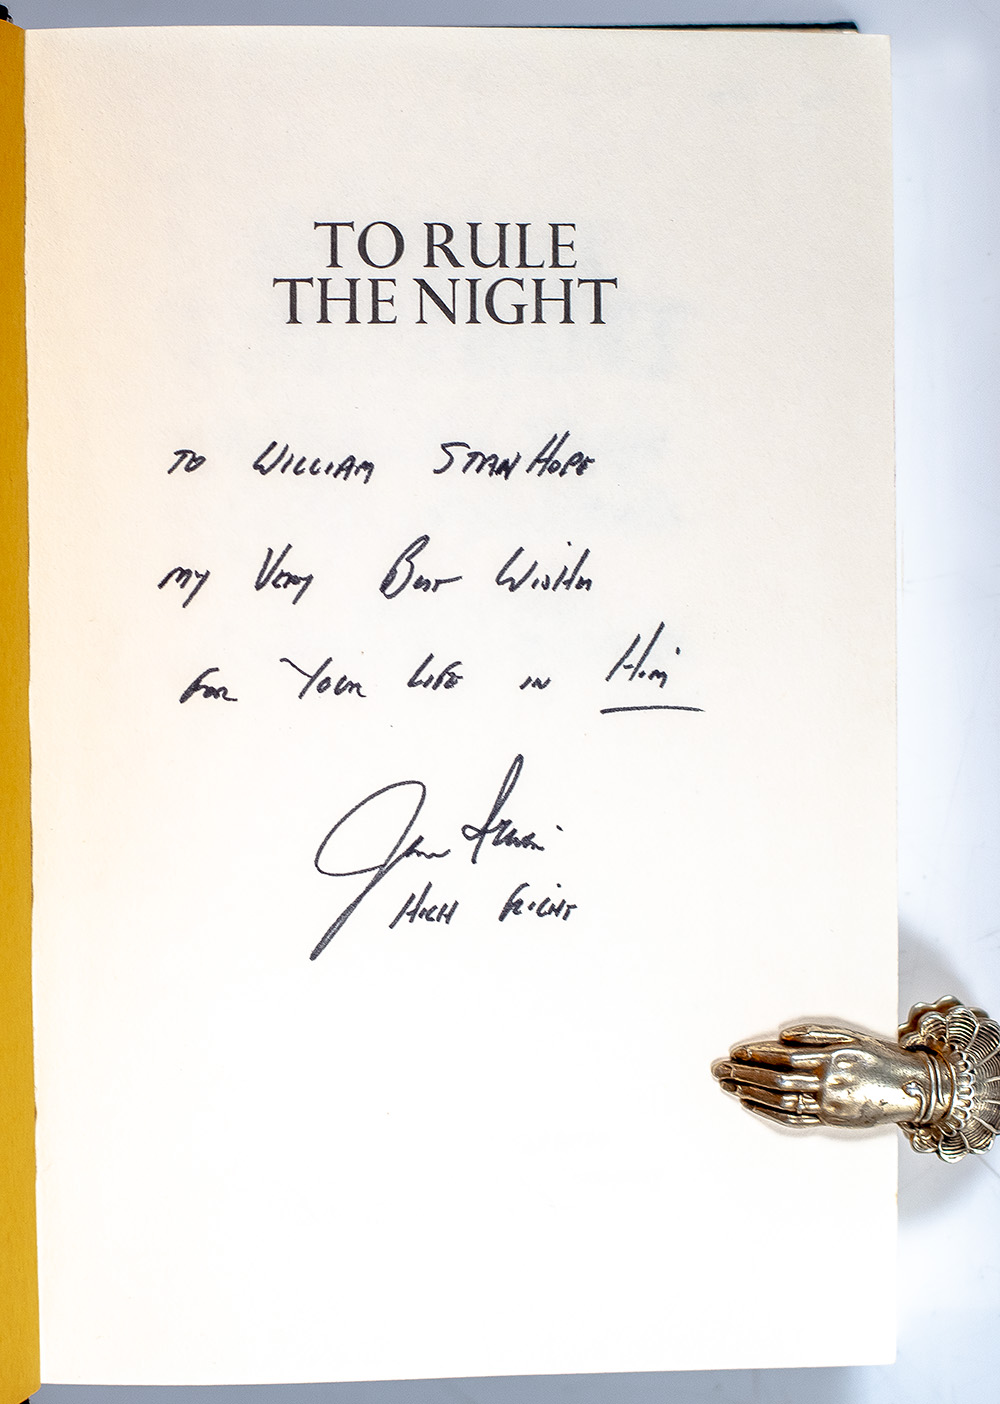 TO RULE
THE NIGHT
TO WILLIAM STANHOPE
MY VERY BEST WISHES
FOR YOUR LIFE IN HIM
Jim Irwin
HIGH FLIGHT